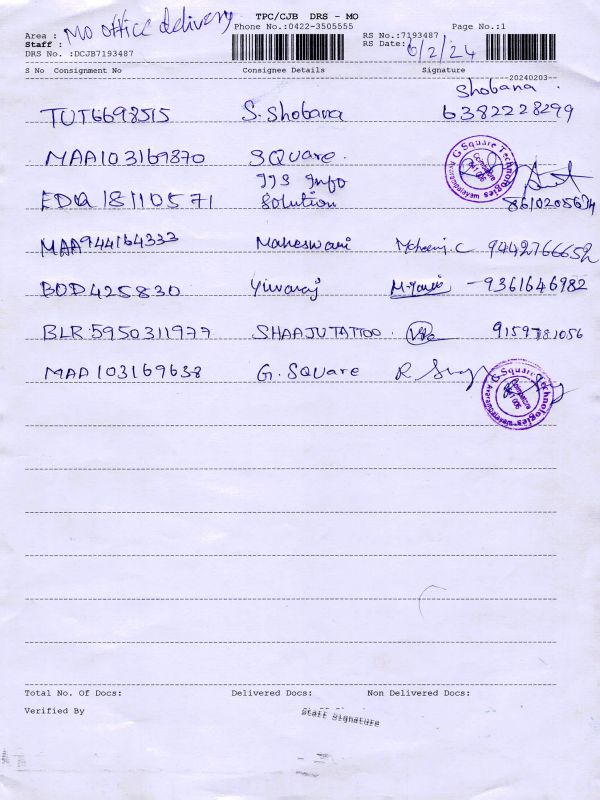 TPC/CJB DRS - MO
Mo office delivery
Area :
Phone No.:0422-3505555
Page No.:1
Staff :
RS No.:7193487
DRS No. :DCJB7193487
RS Date: 6/2/24
S No Consignment No Consignee Details Signature
20240203
Shobana.
TUT6698515 S. Shobana 6382228299
MAA103169870 SQuare.
G Square Technologies
Coimbatore
EDQ 18110571 IJS Info Solution 8610205674
MAA944164333 Maheswari 9442766652
BOD425830 Yuvaraj 9361646982
BLR 5950311977 SHAAJU TATTOO. 9159781056
MAA103169638 G. SQuare
G Square Technologies
Coimbatore
Total No. Of Docs: Delivered Docs: Non Delivered Docs:
Verified By
Staff Signature